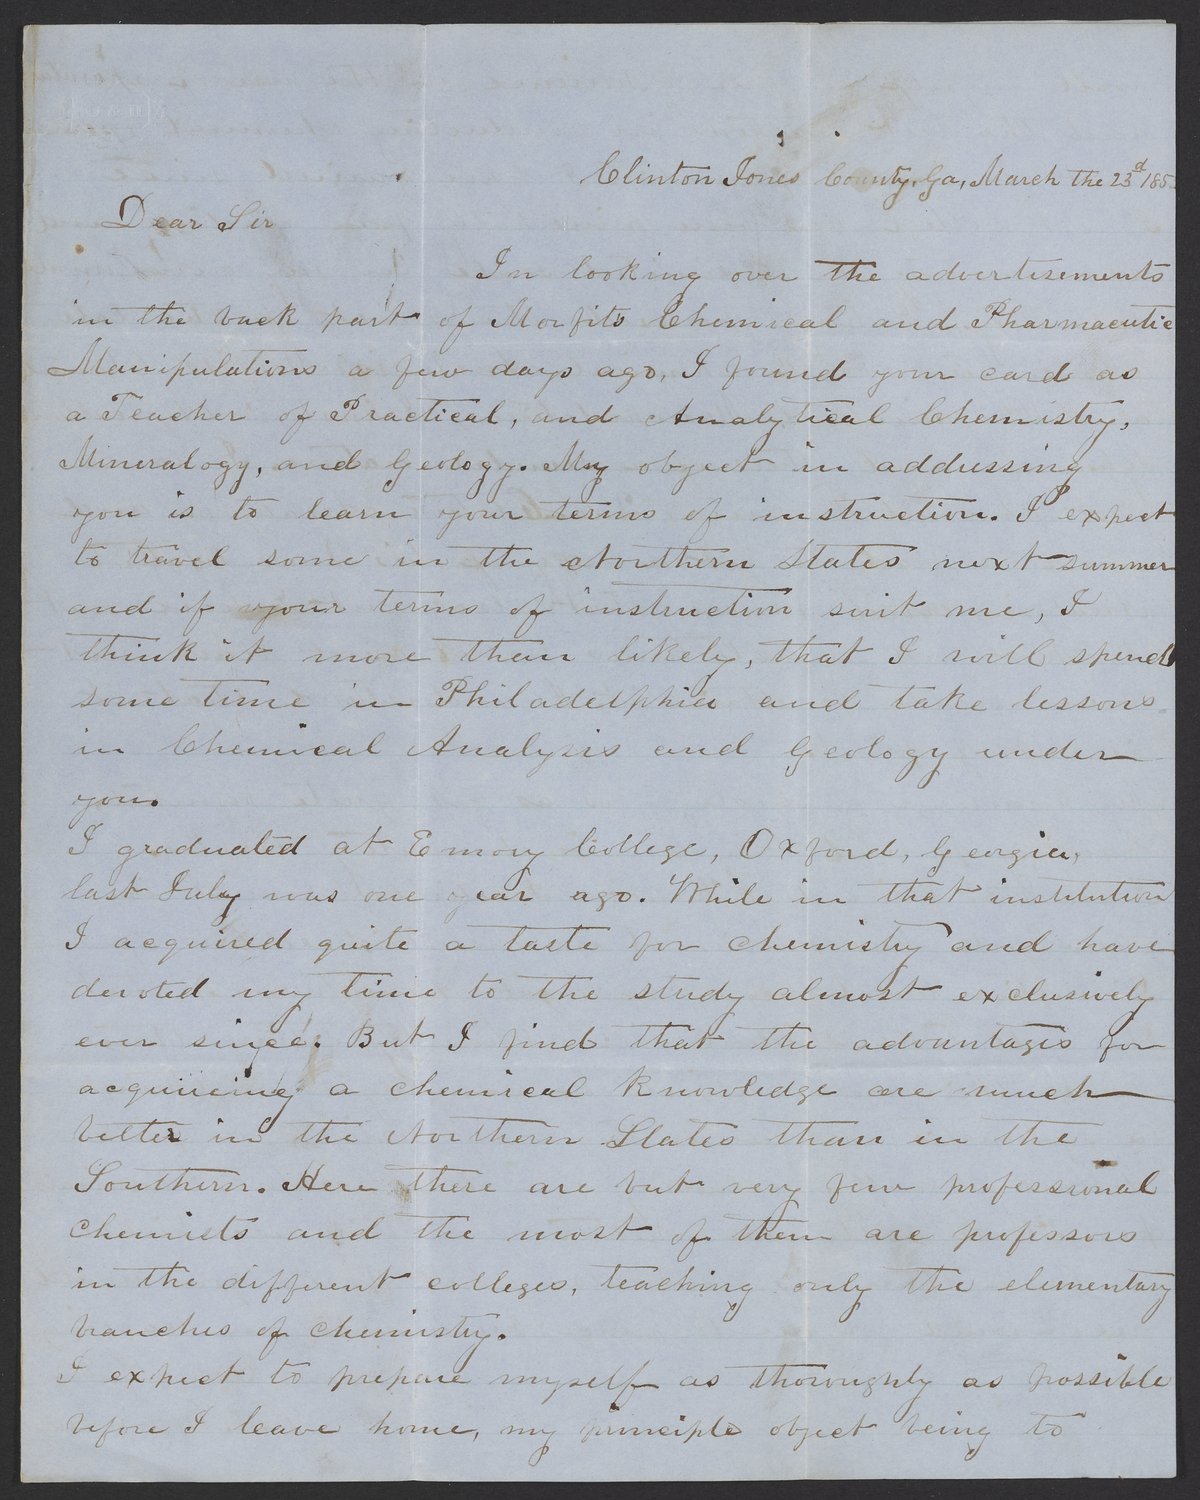 Clinton Jones County, Ga, March the 23d 185
Dear Sir
In looking over the advertisements
in the back part of Morfits Chemical and Pharmaceutic
Manipulations a few days ago, I found your card as
a Teacher of Practical, and Analytical Chemistry,
Mineralogy, and Geology. My object in addressing
you is to learn your terms of instruction. I expect
to travel some in the Northern States next summer
and if your terms of instruction suit me, I
think it more than likely, that I will spend
some time in Philadelphia and take lessons
in Chemical Analysis and Geology under
you.
I graduated at Emory College, Oxford, Georgia,
last July was one year ago. While in that institution
I acquired quite a taste for chemistry and have
devoted my time to the study almost exclusively
ever since. But I find that the advantages for
acquireing a chemical knowledge are much
better in the Northern States than in the
Southern. Here there are but very few professional
chemists and the most of them are professors
in the different colleges, teaching only the elementary
branches of chemistry.
I expect to prepare myself as thoroughly as possible
before I leave home, my principle object being to